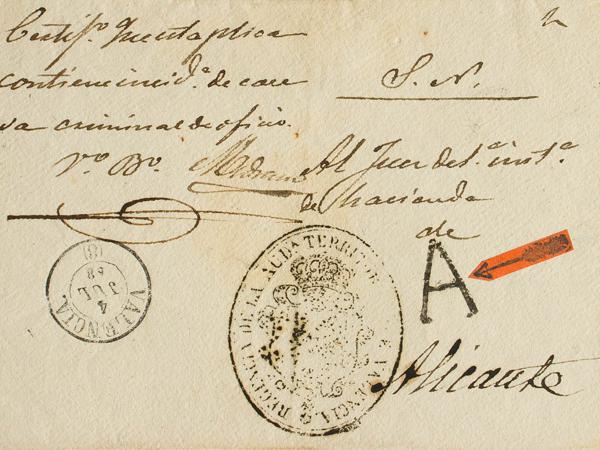 Certif.º Queestaplica
contieneincid.ª de cau
sa criminal de oficio.
V.º B.º
S. N.
Al Juez de 1.ª inst.ª
de Hacienda
de
A
Alicante
VALENCIA
4
JUL
68
(8)
REGENCIA DE LA AUD.ª TERRIT.L DE VALENCIA